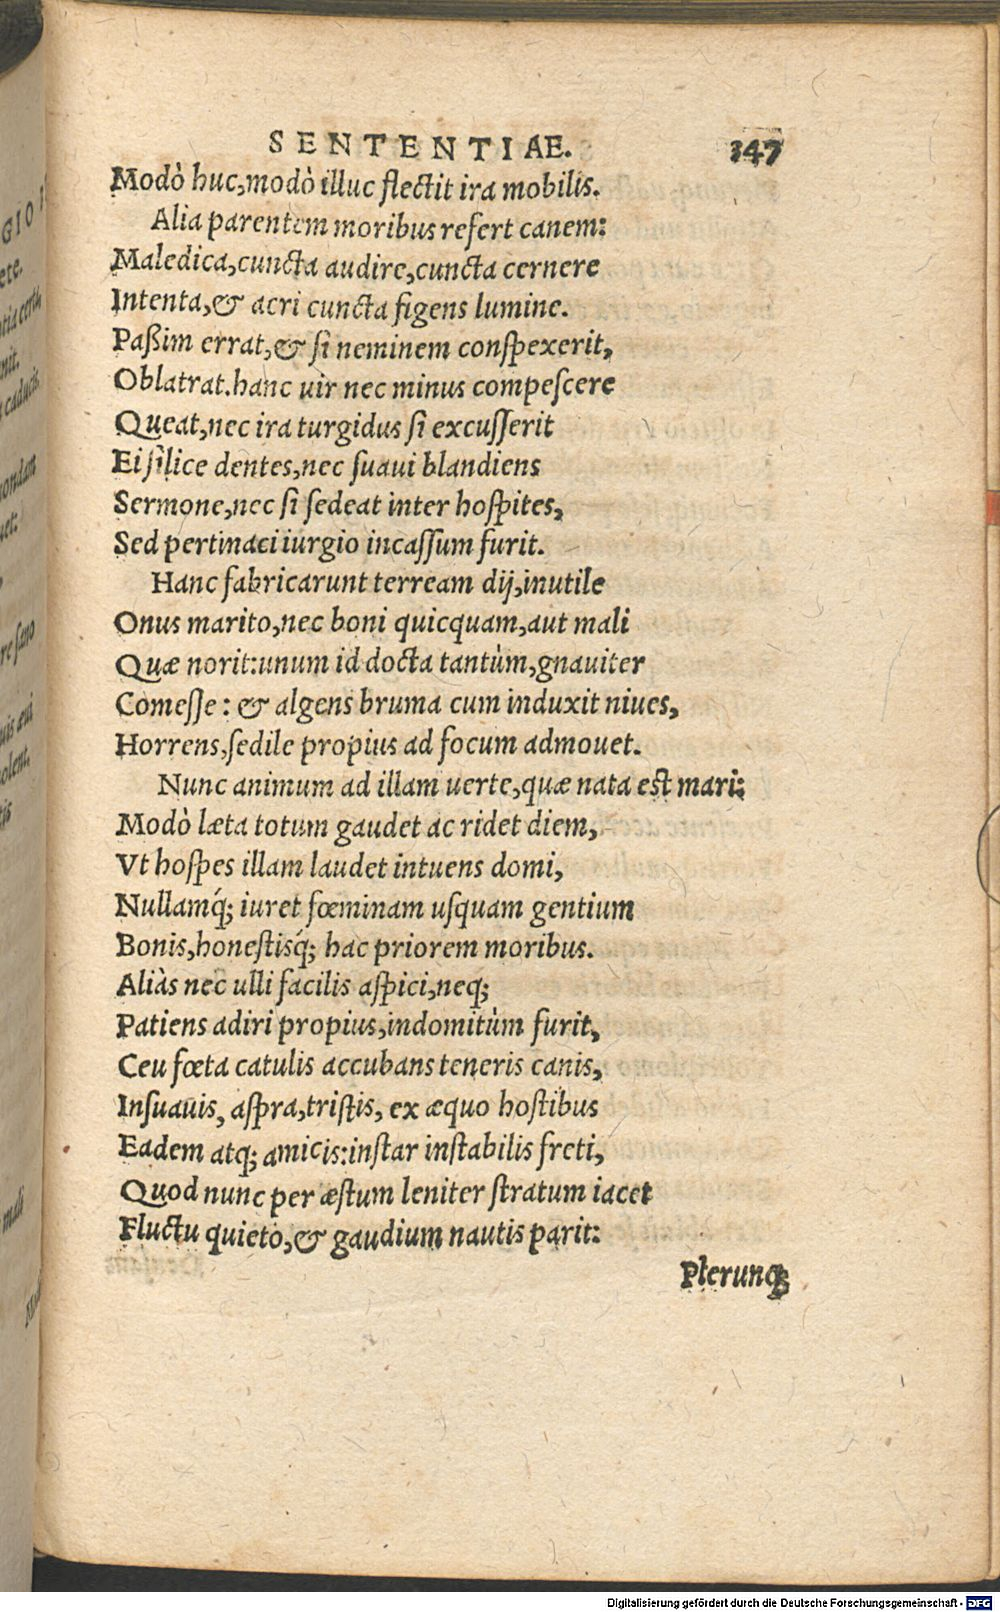 SENTENTIAE. 147
Modò huc,modò illuc flectit ira mobilis.
Alia parentem moribus refert canem:
Maledica,cuncta audire,cuncta cernere
Intenta,& acri cuncta figens lumine.
Paßim errat,& ſi neminem conſpexerit,
Oblatrat.hanc uir nec minus compeſcere
Queat,nec ira turgidus ſi excuſſerit
Ei ſilice dentes,nec ſuaui blandiens
Sermone,nec ſi ſedeat inter hoſpites,
Sed pertinaci iurgio incaſſum furit.
Hanc fabricarunt terream dij,inutile
Onus marito,nec boni quicquam,aut mali
Quæ norit:unum id docta tantùm,gnauiter
Comeſſe: & algens bruma cum induxit niues,
Horrens,ſedile propius ad focum admouet.
Nunc animum ad illam uerte,quæ nata est mari:
Modò læta totum gaudet ac ridet diem,
Vt hoſpes illam laudet intuens domi,
Nullamq́; iuret fœminam uſquam gentium
Bonis,honeſtisq́; hac priorem moribus.
Aliàs nec ulli facilis aſpici,neq;
Patiens adiri propius,indomitùm furit,
Ceu fœta catulis accubans teneris canis,
Inſuauis, aſpra,triſtis, ex æquo hoſtibus
Eadem atq; amicis:inſtar inſtabilis freti,
Quod nunc per æſtum leniter ſtratum iacet
Fluctu quieto,& gaudium nautis parit:
Plerunq;
Digitalisierung gefördert durch die Deutsche Forschungsgemeinschaft - DFG